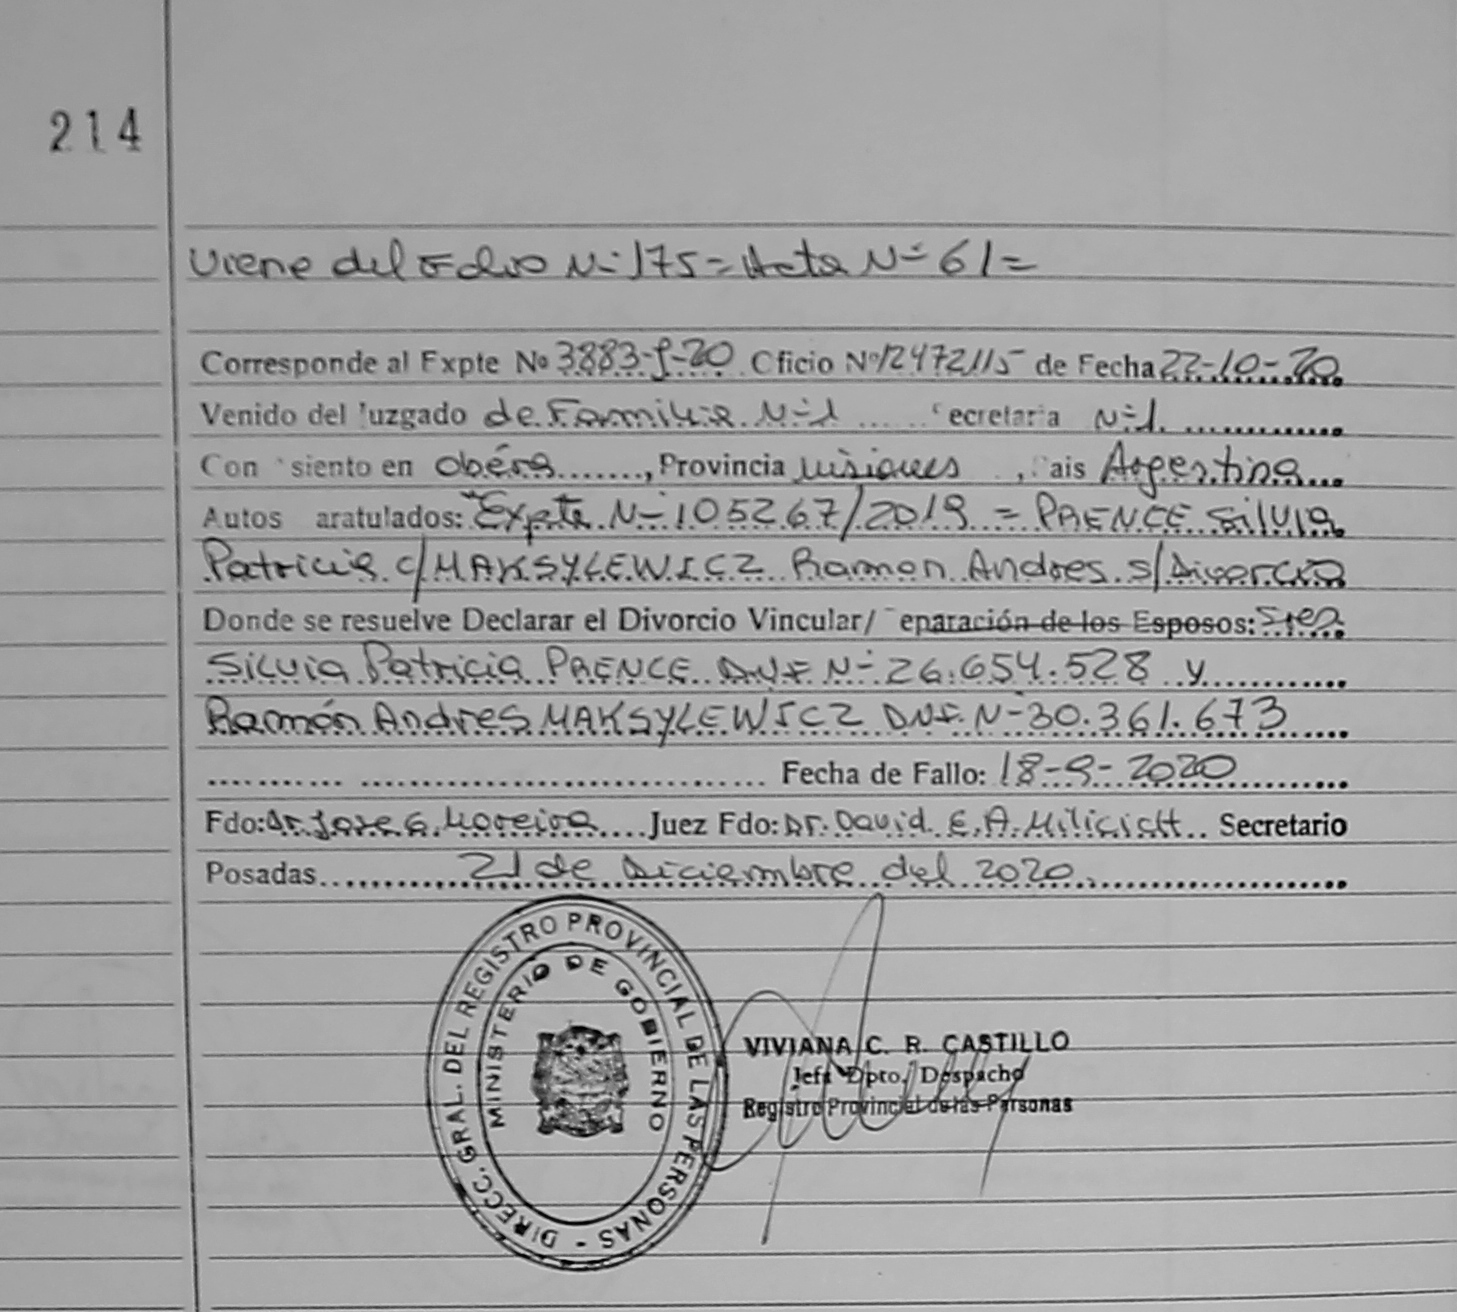 214
Viene del Folio N- 175 = Acta N= 61 =
Corresponde al Expte No 3883-P-20 Oficio Nº 12472115 de Fecha 22-10-20
Venido del Juzgado de Familia N=1 ecretaria N=1.
Con siento en Oberá........, Provincia Misiones , Pais Argentina...
Autos aratulados: "Expte. N- 105267/2019 = PRENCE Silvia
Patricia c/ MAKSYLEWICZ Ramon Andres s/ Divorcio
Donde se resuelve Declarar el Divorcio Vincular/ eparación de los Esposos: Sres.
Silvia Patricia PRENCE D.N.I. N- 26.654.528 y
Ramón Andres MAKSYLEWICZ DNI. N- 30.361.673
Fecha de Fallo: 18-9-2020
Fdo: Dr. Jose G. Moreira.... Juez Fdo: Dr. David. E. A. Milicich.. Secretario
Posadas... 21 de Diciembre del 2020.
DIRECC. GRAL. DEL REGISTRO PROVINCIAL DE LAS PERSONAS -
MINISTERIO DE GOBIERNO
VIVIANA C. R. CASTILLO
Jefa Dpto. Despacho
Registro Provincial de las Personas